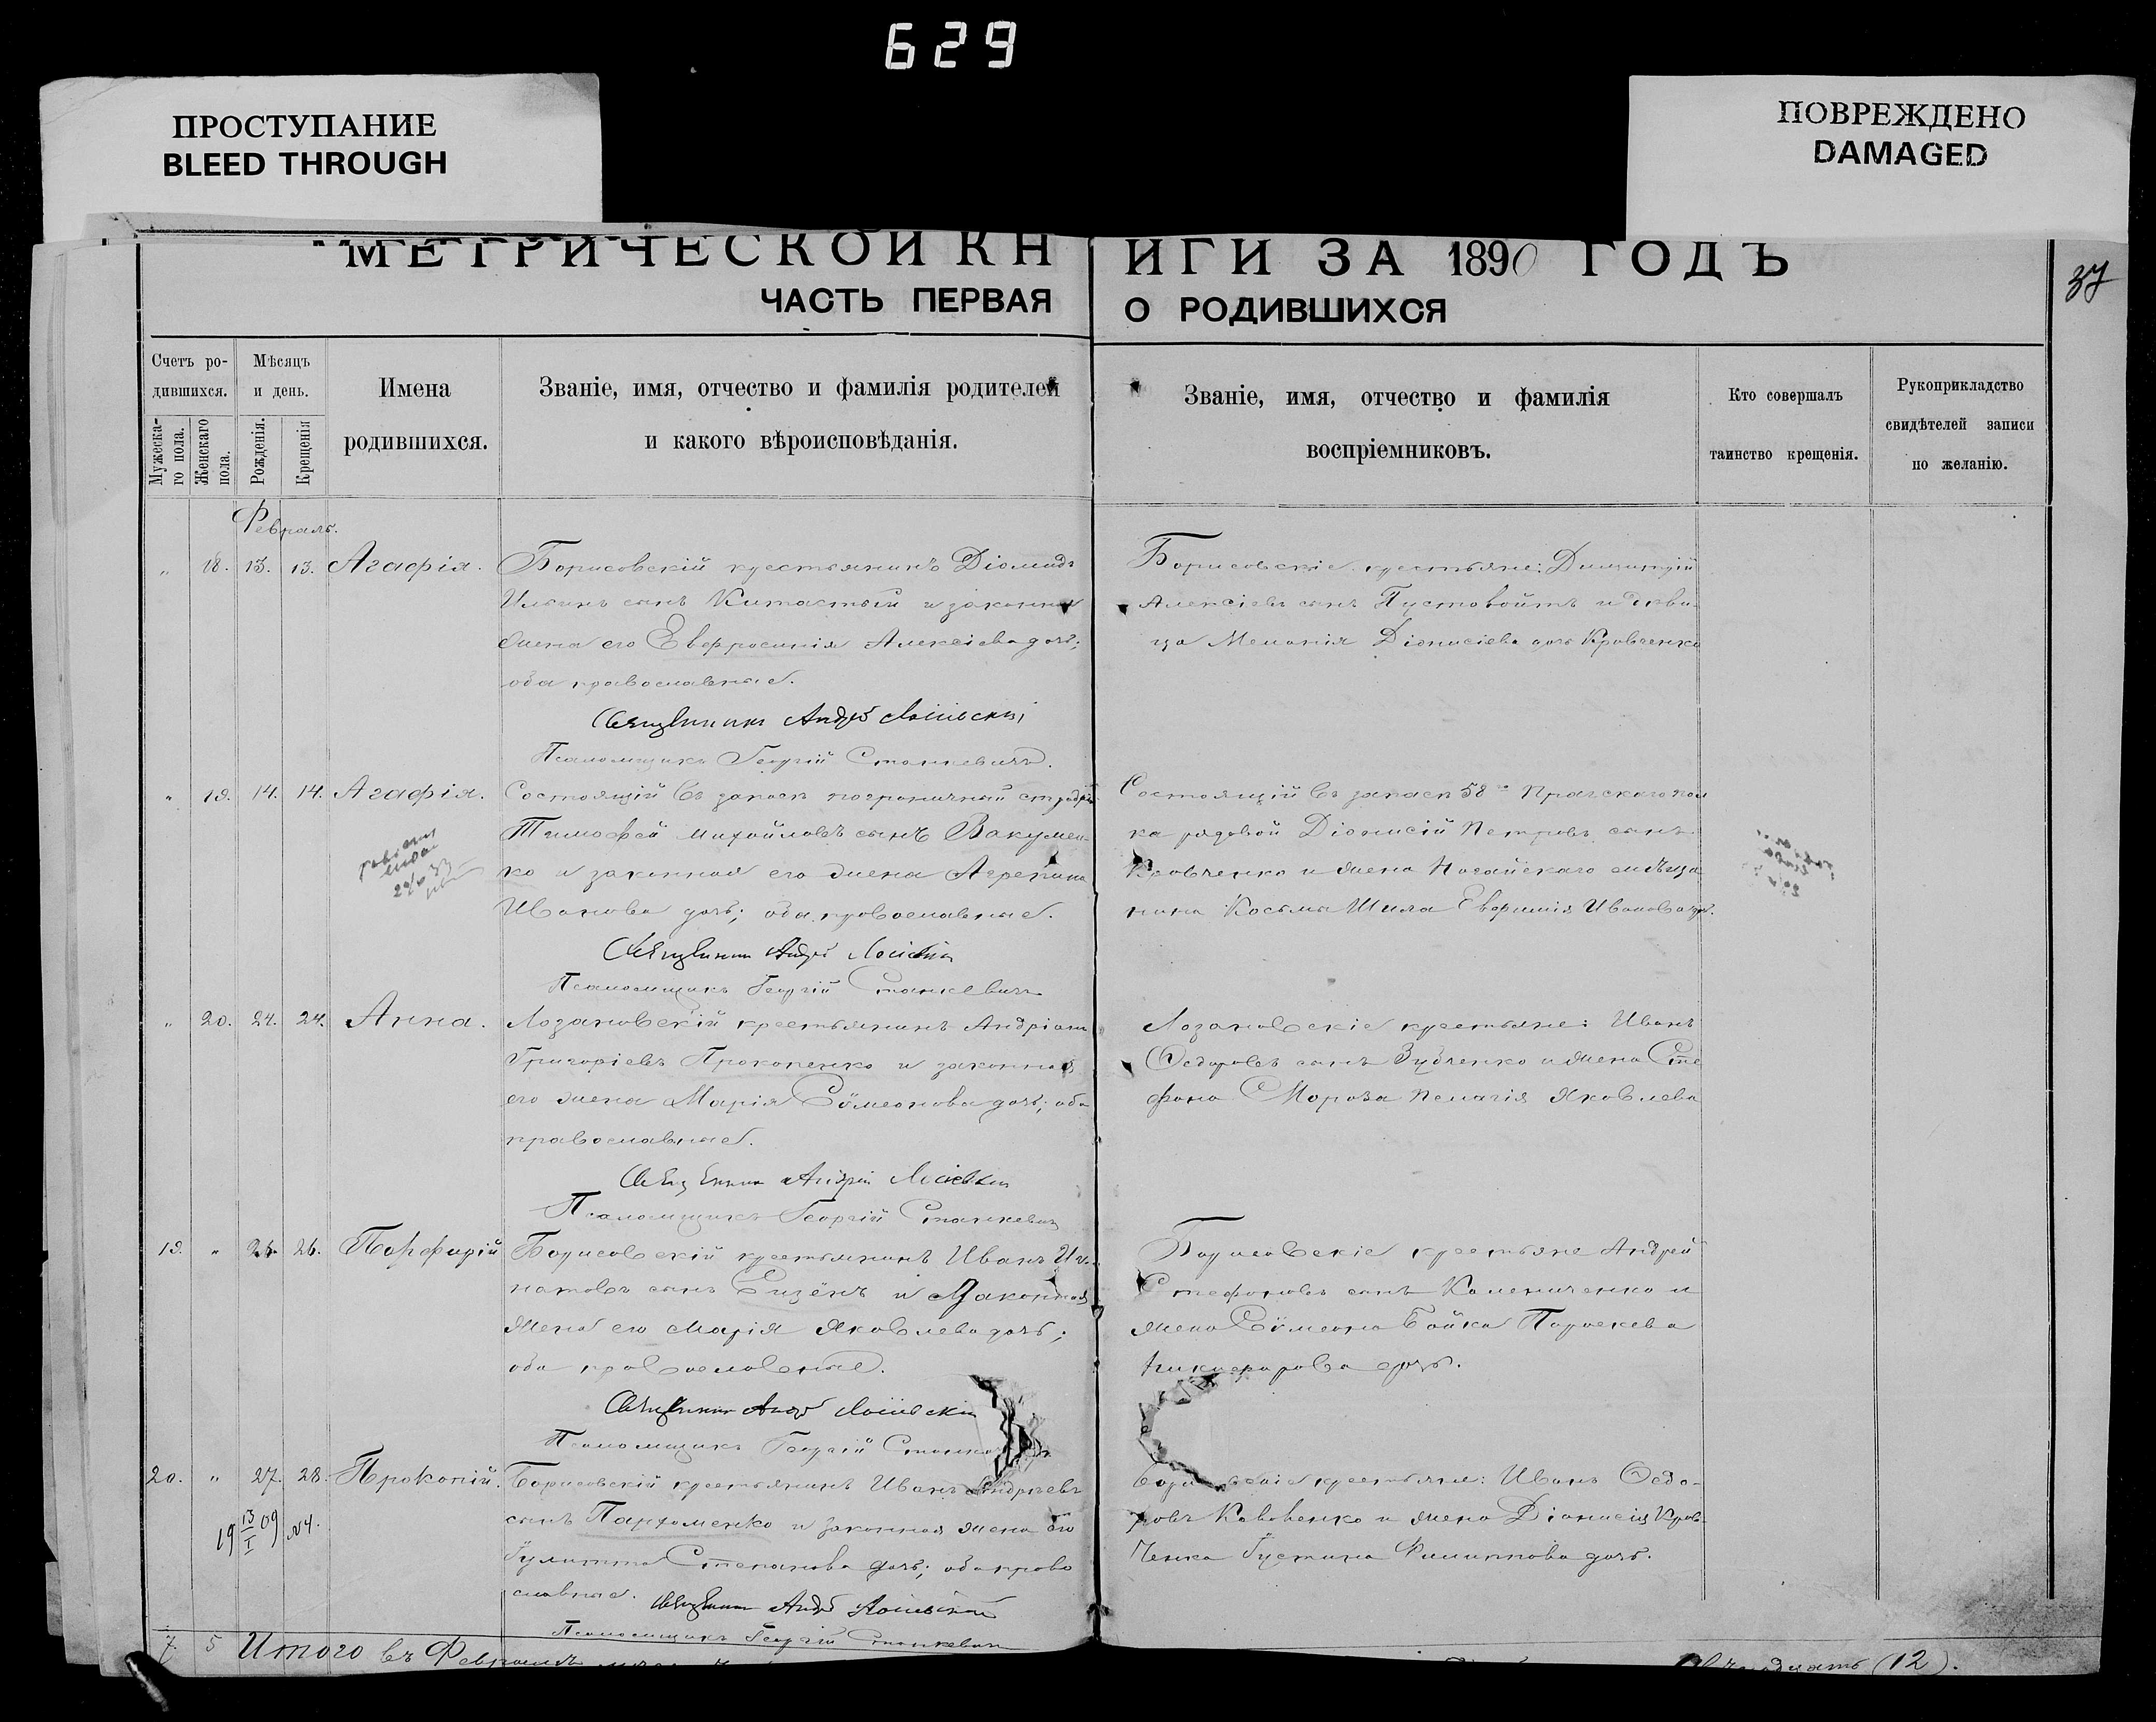 629
ПРОСТУПАНИЕ
BLEED THROUGH
ПОВРЕЖДЕНО
DAMAGED
МЕТРИЧЕСКОЙ КНИГИ ЗА 1890 ГОДЪ
37
ЧАСТЬ ПЕРВАЯ О РОДИВШИХСЯ
Счетъ ро-
дившихся.
Мужеска-
го пола.
Женскаго
пола.
Мѣсяцъ
и день.
Рожденія.
Крещенія
Имена
родившихся.
Званіе, имя, отчество и фамилія родителей
и какого вѣроисповѣданія.
Званіе, имя, отчество и фамилія
воспріемниковъ.
Кто совершалъ
таинство крещенія.
Рукоприкладство
свидѣтелей записи
по желанію.
Февраль.
" 18. 13. 13. Агафія.
Борисовскій крестьянинъ Діомидъ
Ильинъ сынъ Китастый и законная
жена его Евфросинія Алексіева дочь;
оба православные.
Священникъ Андрей
Псаломщикъ Георгій Станкевичъ.
Борисовскіе крестьяне: Димитрій
Алексіевъ сынъ Пустовойтъ и дѣви-
ца Меланія Діонисіева дочь Кравченко
" 19. 14. 14. Агафія.
Состоящій въ запасѣ пограничный
Тимофей Михайловъ сынъ Вакумен-
ко и законная его жена Агрепина
Иванова дочь; оба православные.
Священникъ Андрей
Псаломщикъ Георгій Станкевичъ
Состоящій въ запасѣ 58го Прагскаго пол
ка рядовой Діонисій Петровъ сынъ
Кравченко и жена Ногайскаго мѣща
нина Косьмы Шила Евфимія Иванова
" 20. 24. 24. Анна.
Лозановскій крестьянинъ Андріанъ
Григоріевъ Прокопенко и законная
его жена Марія Сѵмеонова дочь; оба
православные.
Священникъ Андрей
Псаломщикъ Георгій Станкевичъ
Лозановскіе крестьяне: Иванъ
Ѳедоровъ сынъ Зубченко и жена Сте
фана Мороза Пелагія Яковлева
19. " 26. Порфирій
Борисовскій крестьянинъ Иванъ Иг-
натовъ сынъ и законная
жена его Марія Яковлева дочь;
оба православные.
Священникъ Андрей
Псаломщикъ Георгій
Борисовскіе крестьяне Андрей
Стефановъ сынъ Калениченко и
жена Сѵмеона Бойка Параскева
Никифорова дочь.
20. " 27. 28. Прокопій.
19 13/I 09 №4.
Борисовскій крестьянинъ Иванъ Андреевъ
сынъ Пархоменко и законная жена его
Іулитта Степанова дочь; оба право
славные. Священникъ Андрей
Псаломщикъ Георгій Станкевичъ
крестьяне: Иванъ Ѳедо-
ровъ и жена Діонисія Крав-
ченка Іустина Филиппова дочь.
7. 5 Итого въ Февралѣ
(12).